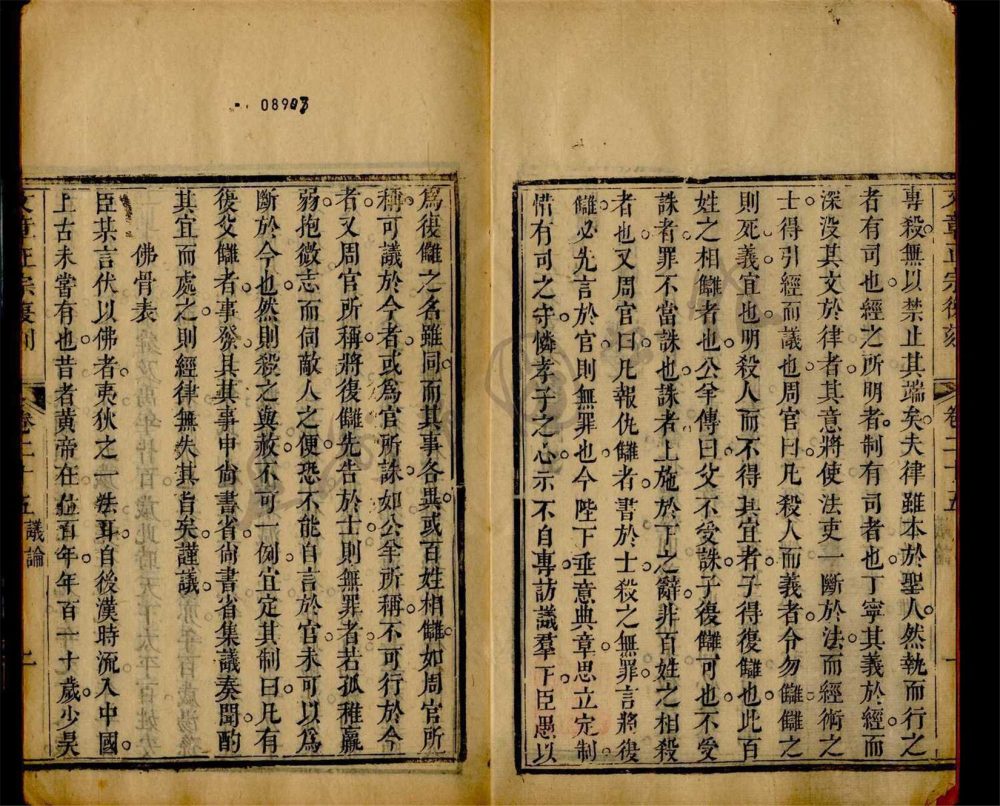 08903
文章正宗復刻 卷二十五 議論 一
專殺無以禁止其端矣夫律雖本於聖人然執而行之
者有司也經之所明者制有司者也丁寧其義於經而
深没其文於律者其意將使法吏一斷於法而經術之
士得引經而議也周官曰凡殺人而義者令勿讎讎之
則死義宜也明殺人而不得其宜者子得復讎也此百
姓之相讎者也公羊傳曰父不受誅子復讎可也不受
誅者罪不當誅也誅者上施於下之辭非百姓之相殺
者也又周官曰凡報仇讎者書於士殺之無罪言將復
讎必先言於官則無罪也今陛下垂意典章思立定制
惜有司之守憐孝子之心示不自專訪議羣下臣愚以
爲復讎之名雖同而其事各異或百姓相讎如周官所
稱可議於今者或爲官所誅如公羊所稱不可行於今
者又周官所稱將復讎先告於士則無罪者若孤稚羸
弱抱微志而伺敵人之便恐不能自言於官未可以爲
斷於今也然則殺之與赦不可一例宜定其制曰凡有
復父讎者事發具其事申尚書省尚書省集議奏聞酌
其宜而處之則經律無失其㫖矣謹議
佛骨表
臣某言伏以佛者夷狄之一法耳自後漢時流入中國
上古未嘗有也昔者黃帝在位百年年百一十歲少昊
文章正宗復刻 卷二十五 議論 二